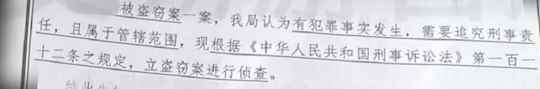 被盗窃案一案，我局认为有犯罪事实发生，需要追究刑事责
任，且属于管辖范围，现根据《中华人民共和国刑事诉讼法》第一百一
十二条之规定，立盗窃案进行侦查。